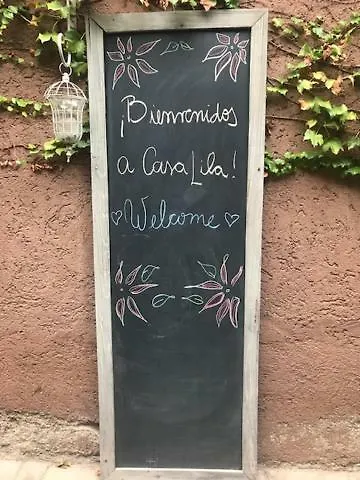 ¡Bienvenidos
a Casa Lila!
♡ Welcome ♡